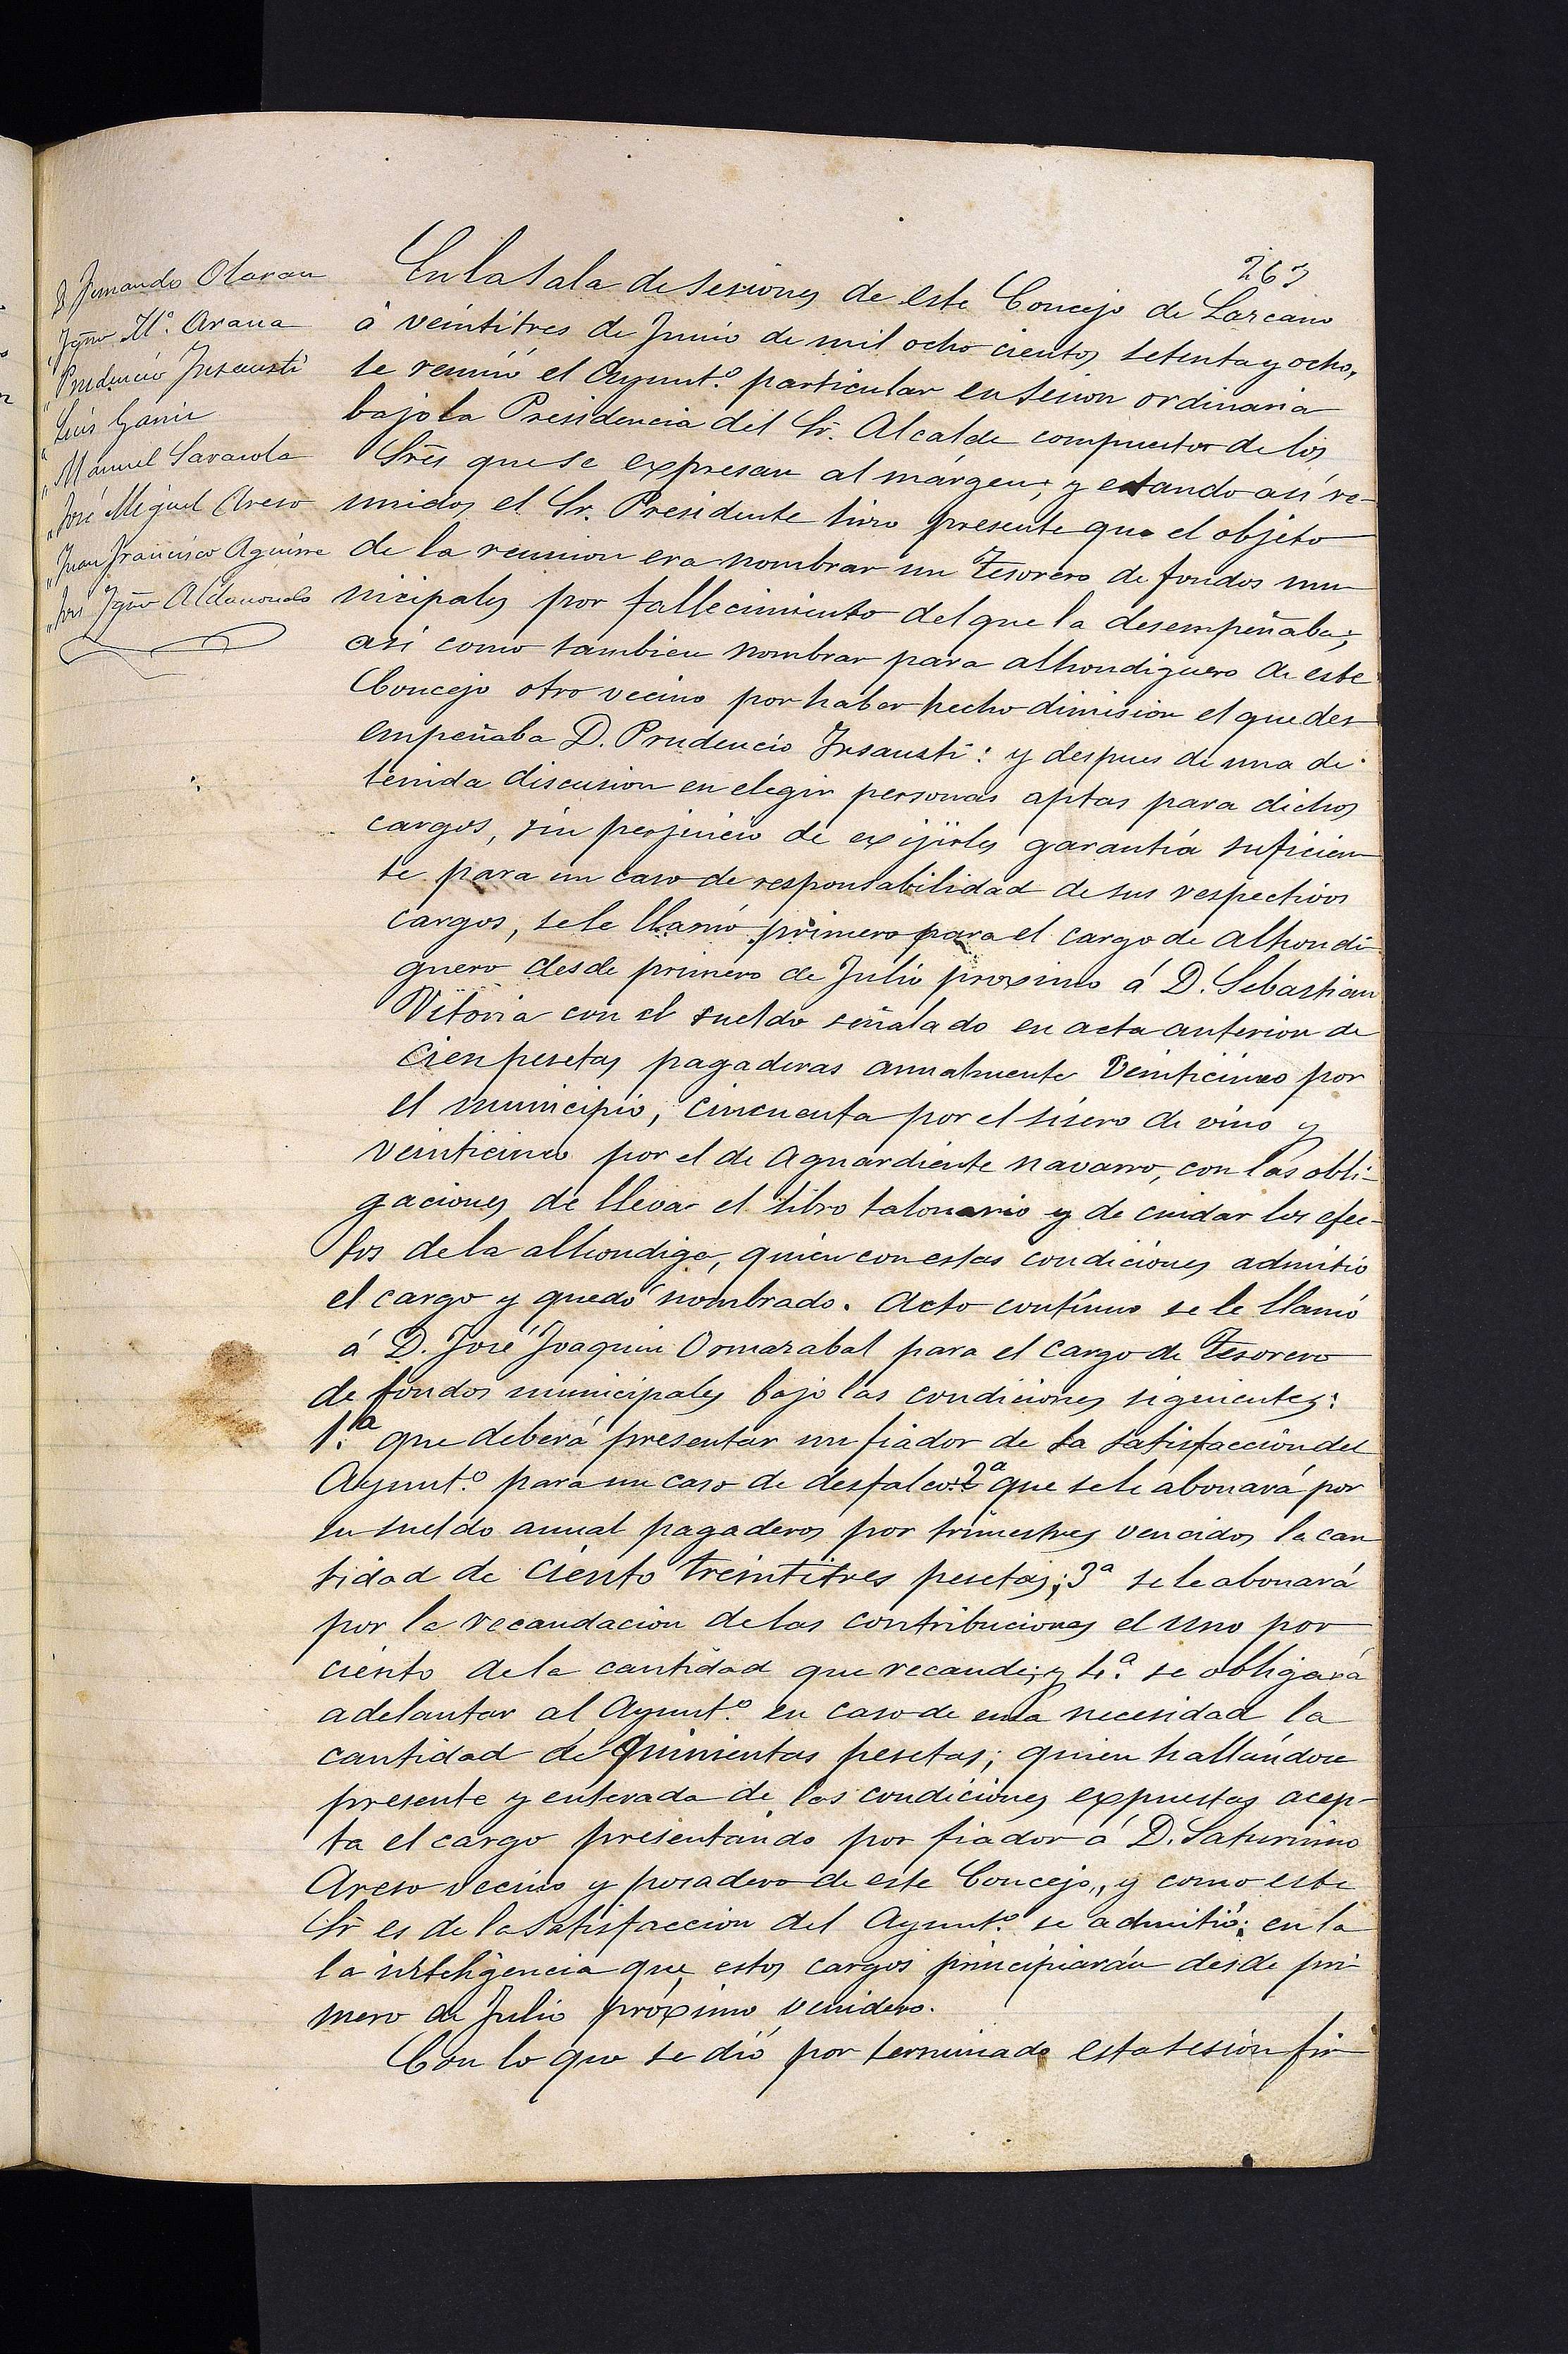 263
D. Fernando Olaran
" Ygno. M.ª Arana
" Prudencio Ynsausti
" Luis Garin
" Manuel Sarasola
" José Miguel Areso
" Juan Francisco Aguirre
" José Ygno Aldanondo
En la Sala de Sesiones de este Concejo de Lazcano
á veintitres de Junio de mil ocho cientos setenta y ocho,
se reunió el Ayunt.º particular en sesion ordinaria
bajo la Presidencia del Sr. Alcalde compuestor de los
Sres que se expresan al márgen; y estando asi re-
unidos el Sr. Presidente hizo presente que el objeto
de la reunion era nombrar un Tesorero de fondos mu
nicipales por fallecimiento del que la desempeñaba;
asi como tambien nombrar para alhondiguero de este
Concejo otro vecino por haber hecho dimision el que des
empeñaba D. Prudencio Ynsausti: y despues de una de-
tenida discusion en elegir personas aptas para dichos
cargos, sin perjuicio de exijirles garantía suficien
te para un caso de responsabilidad de sus respectivos
cargos, se le llamó primero para el cargo de alhondi
guero desde primero de Julio proximo á D. Sebastian
Vitoria con el sueldo señalado en acta anterior de
cien pesetas pagaderas anualmente Veinticinco por
el municipio, cincuenta por el sisero de vino y
veinticinco por el de Aguardiente navarro, con las obli-
gaciones de llevar el libro talonario y de cuidar los efec-
tos de la alhondiga, quien con estas condiciones admitió
el cargo y quedó nombrado. Acto contínuo se le llamó
á D. José Joaquin Ormazabal para el cargo de Tesorero
de fondos municipales bajo las condiciones siguientes:
1.ª que deberá presentar un fiador de la satisfaccion del
Ayunt.º para un caso de desfalco: 2ª que se le abonará por
su sueldo anual pagaderos por trimestres vencidos la can
tidad de Ciento Treintitres pesetas; 3ª se le abonará
por la recaudacion de las contribuciones el uno por
ciento de la cantidad que recaude; y 4.ª se obligará
adelantar al Ayunt.º en caso de una necesidad la
cantidad de Quinientas pesetas; quien hallándose
presente y enterada de las condiciones expuestas acep-
ta el cargo presentando por fiador á D. Saturnino
Areso vecino y posadero de este Concejo, y como este
Sr es de la satisfaccion del Ayunt.º se admitió; en la
la inteligencia que estos cargos principiarán desde pri
mero de Julio próximo venidero.
Con lo que se dió por terminada esta sesion fir